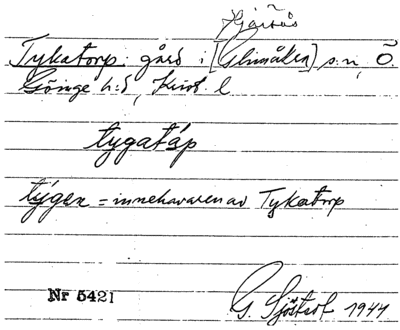 Hjärsås
Tykatorp: gård i [Glimåkra] s:n, Ö.
Göinge h:d, Krist. l
tygatáp
týgen = innehavaren av Tykatorp
Nr 5421
G. Sjöstedt 1944